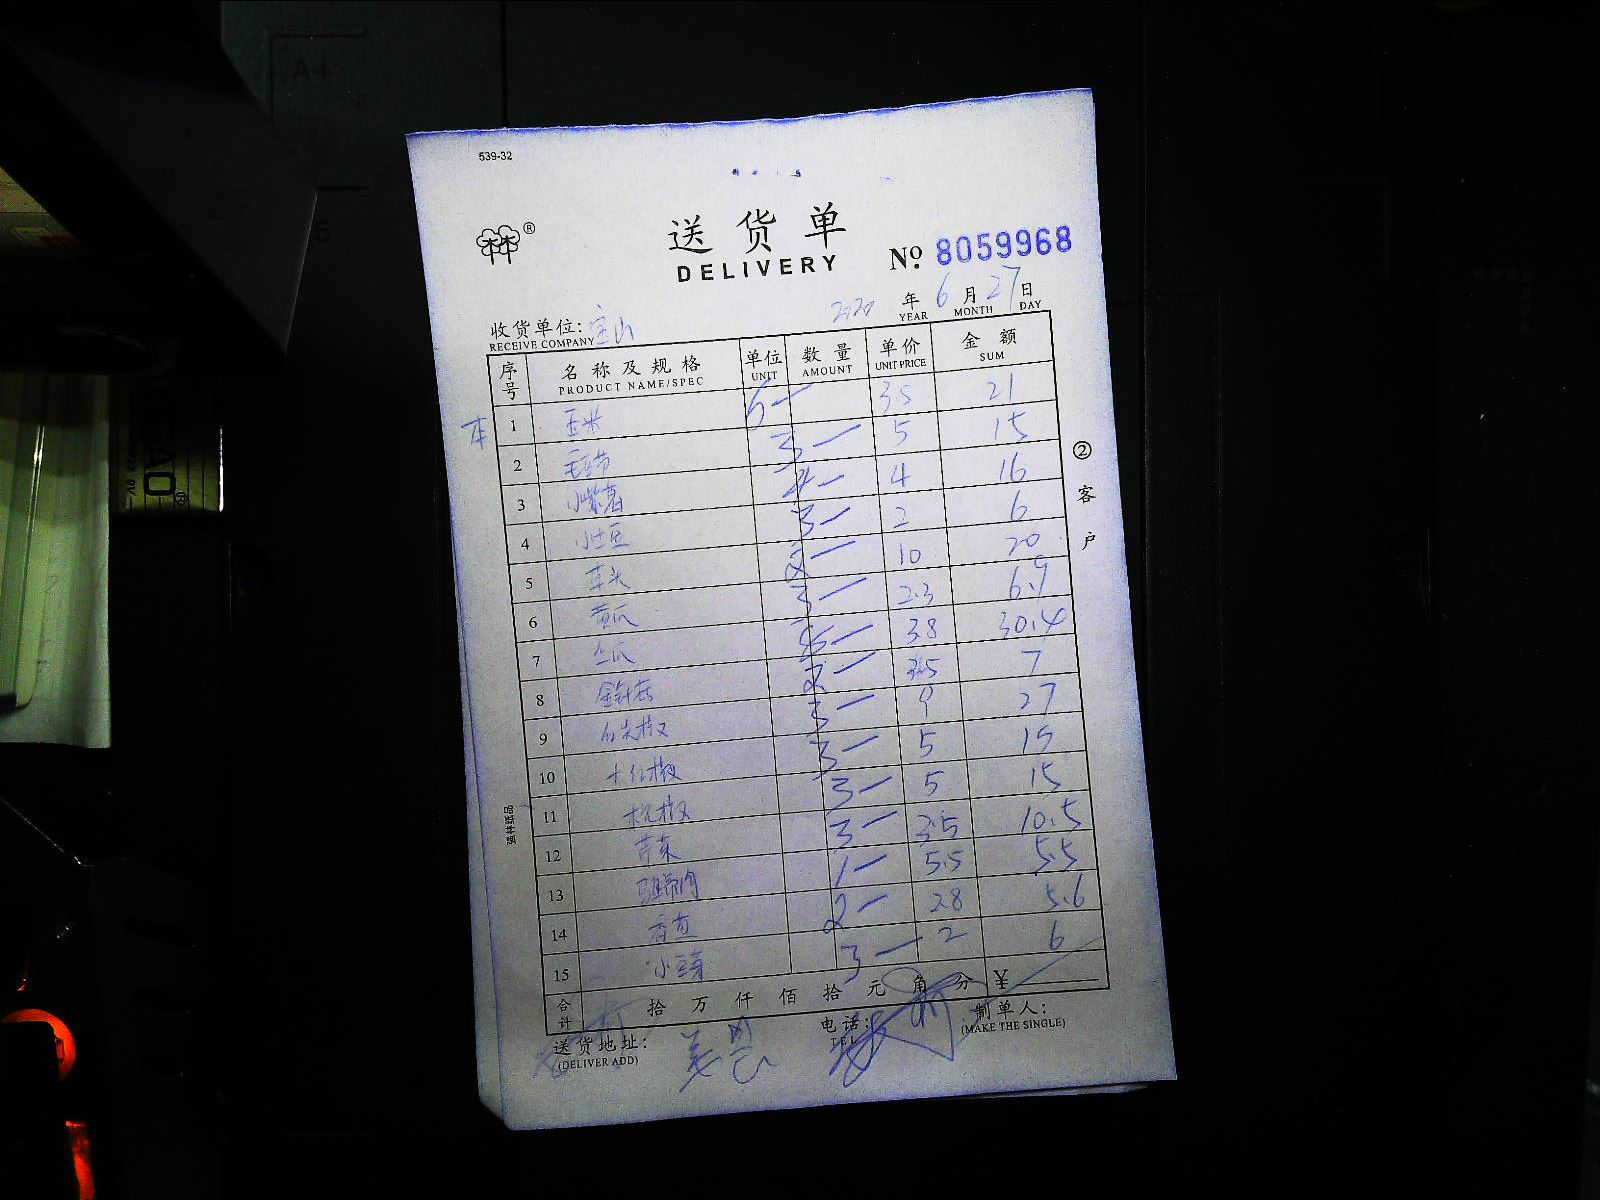 539-32
送货单
DELIVERY
№ 8059968
2020 年 6 月 27 日
YEAR MONTH DAY
收货单位: 宝山
RECEIVE COMPANY
序号 名称及规格 单位 数量 单价 金额
PRODUCT NAME/SPEC UNIT AMOUNT UNIT PRICE SUM
1 玉米 6 3.5 21
2 毛豆节 3 5 15
3 小紫薯 4 4 16
4 小土豆 3 2 6
5 草头 2 10 20
6 黄瓜 3 2.3 6.9
7 3.8 30.4
8 金针菇 2 3.5 7
9 红尖椒 3 9 27
10 3 5 15
11 杭椒 3 5 15
12 芹菜 3 3.5 10.5
13 1 5.5 5.5
14 香查 2 2.8 5.6
15 小豆芽 3 2 6
合计 拾 万 仟 佰 拾 元 角 分 ¥
送货地址:
(DELIVER ADD)
电话:
TEL
制单人:
(MAKE THE SINGLE)
②客户
A4